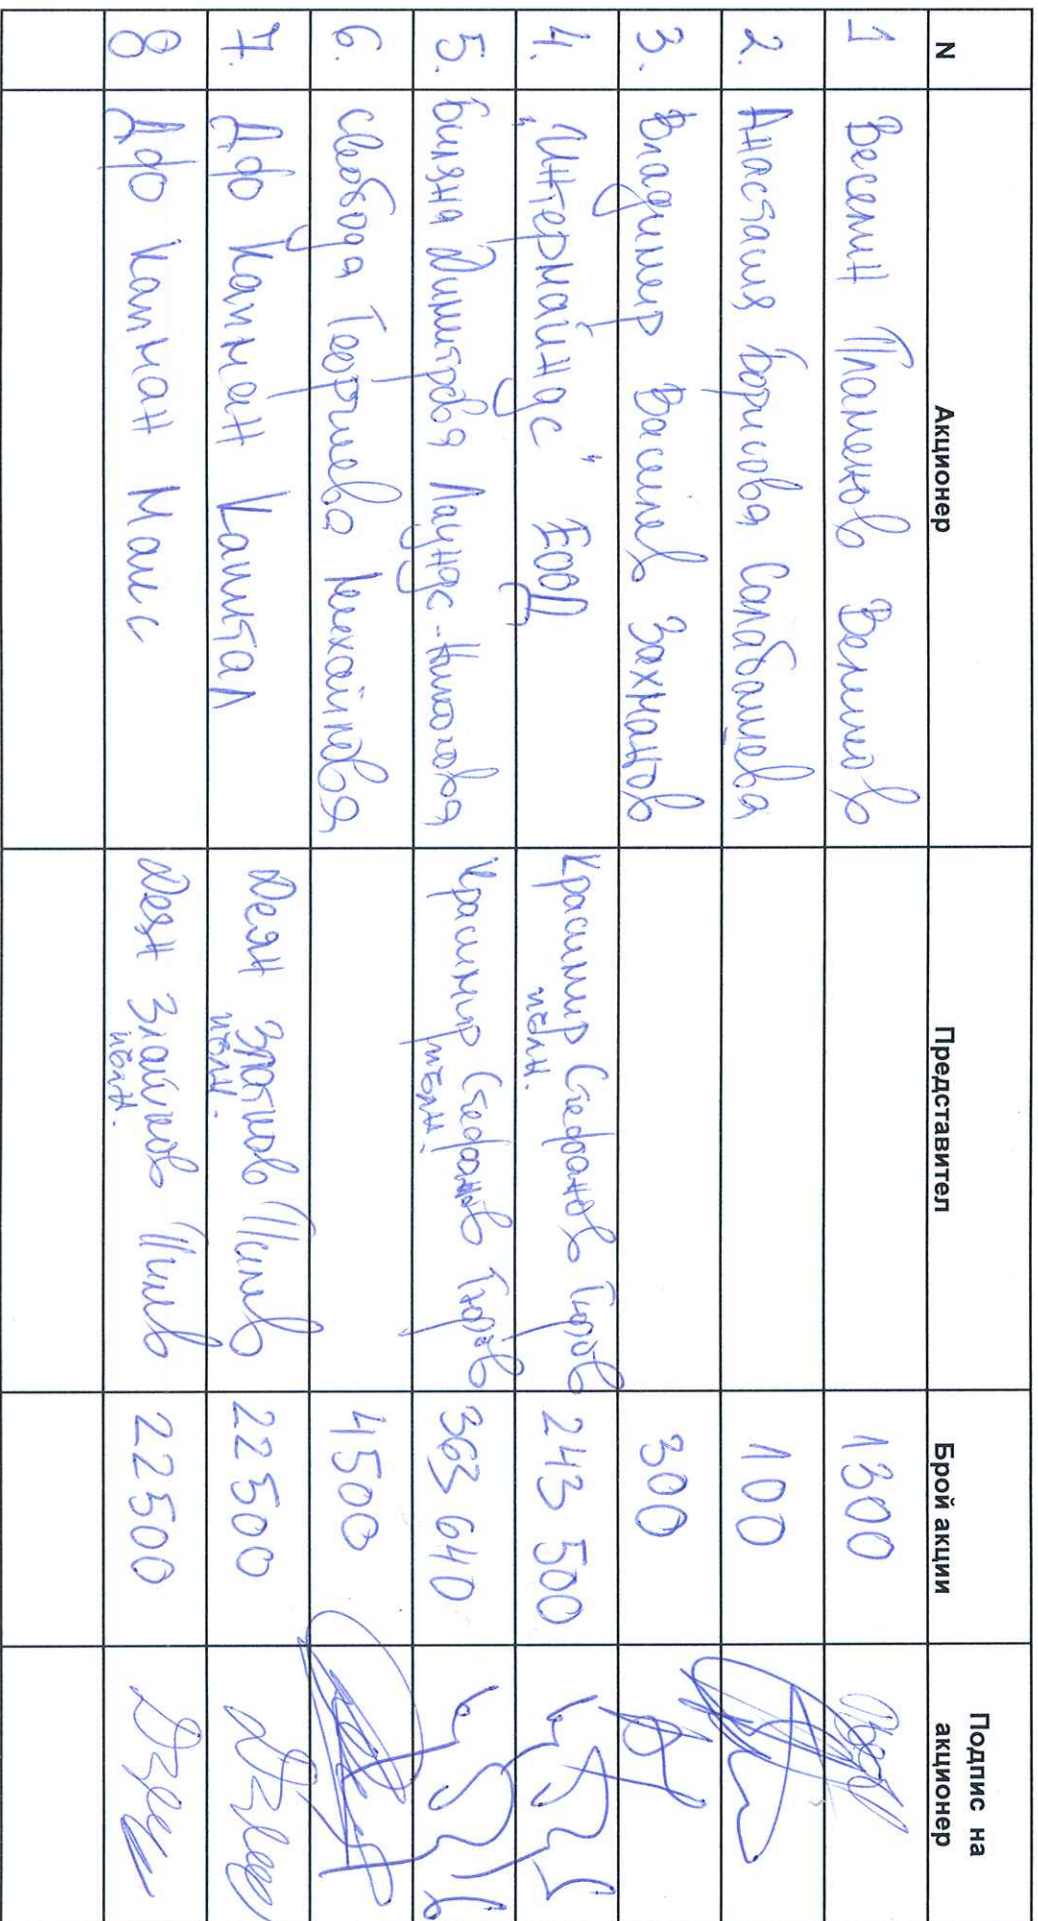 N Акционер Представител Брой акции Подпис на акционер
1 Веселин Пламенов Великов 1300
2. Анастасия Борисова Сарабашева 100
3. Владимир Василев Захманов 300
4. "Интермайндс" ЕООД Красимир Стефанов Гюров пълн. 243 500
5. Биляна Димитрова Лаундс-Николова Красимир Стефанов Гюров пълн. 363 640
6. Свобода Георгиева Михайлова 4500
7. ДФ Капман Капитал Деян Златков пълн. 22500
8 ДФ Капман Макс Деян Златков пълн. 22500